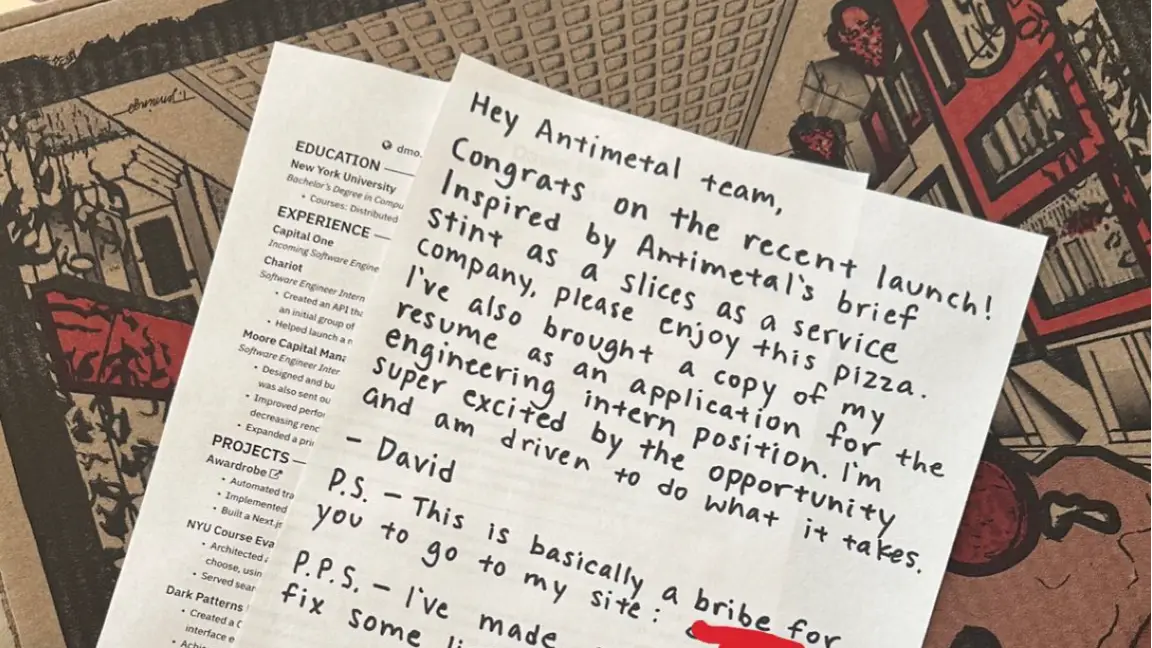 Hey Antimetal team,
Congrats on the recent launch!
Inspired by Antimetal's brief
stint as a slices as a service
company, please enjoy this pizza.
I've also brought a copy of my
resume as an application for the
engineering intern position. I'm
super excited by the opportunity
and am driven to do what it takes.
- David
P.S. - This is basically a bribe for
you to go to my site:
P.P.S. - I've made
fix some
dmo.
EDUCATION
New York University
Bachelor's Degree in Compu
• Courses: Distributed
EXPERIENCE
Capital One
Incoming Software Engine
Chariot
Software Engineer Intern
• Created an API tha
an initial group of
• Helped launch a n
Moore Capital Mana
Software Engineer Inter
• Designed and bu
was also sent ou
• Improved perfo
decreasing renc
• Expanded a pri
PROJECTS
Awardrobe
• Automated tra
• Implemented
• Built a Next.js
NYU Course Eva
• Architected a
choose, usin
• Served sear
Dark Patterns
• Created a C
interface e
• Achie